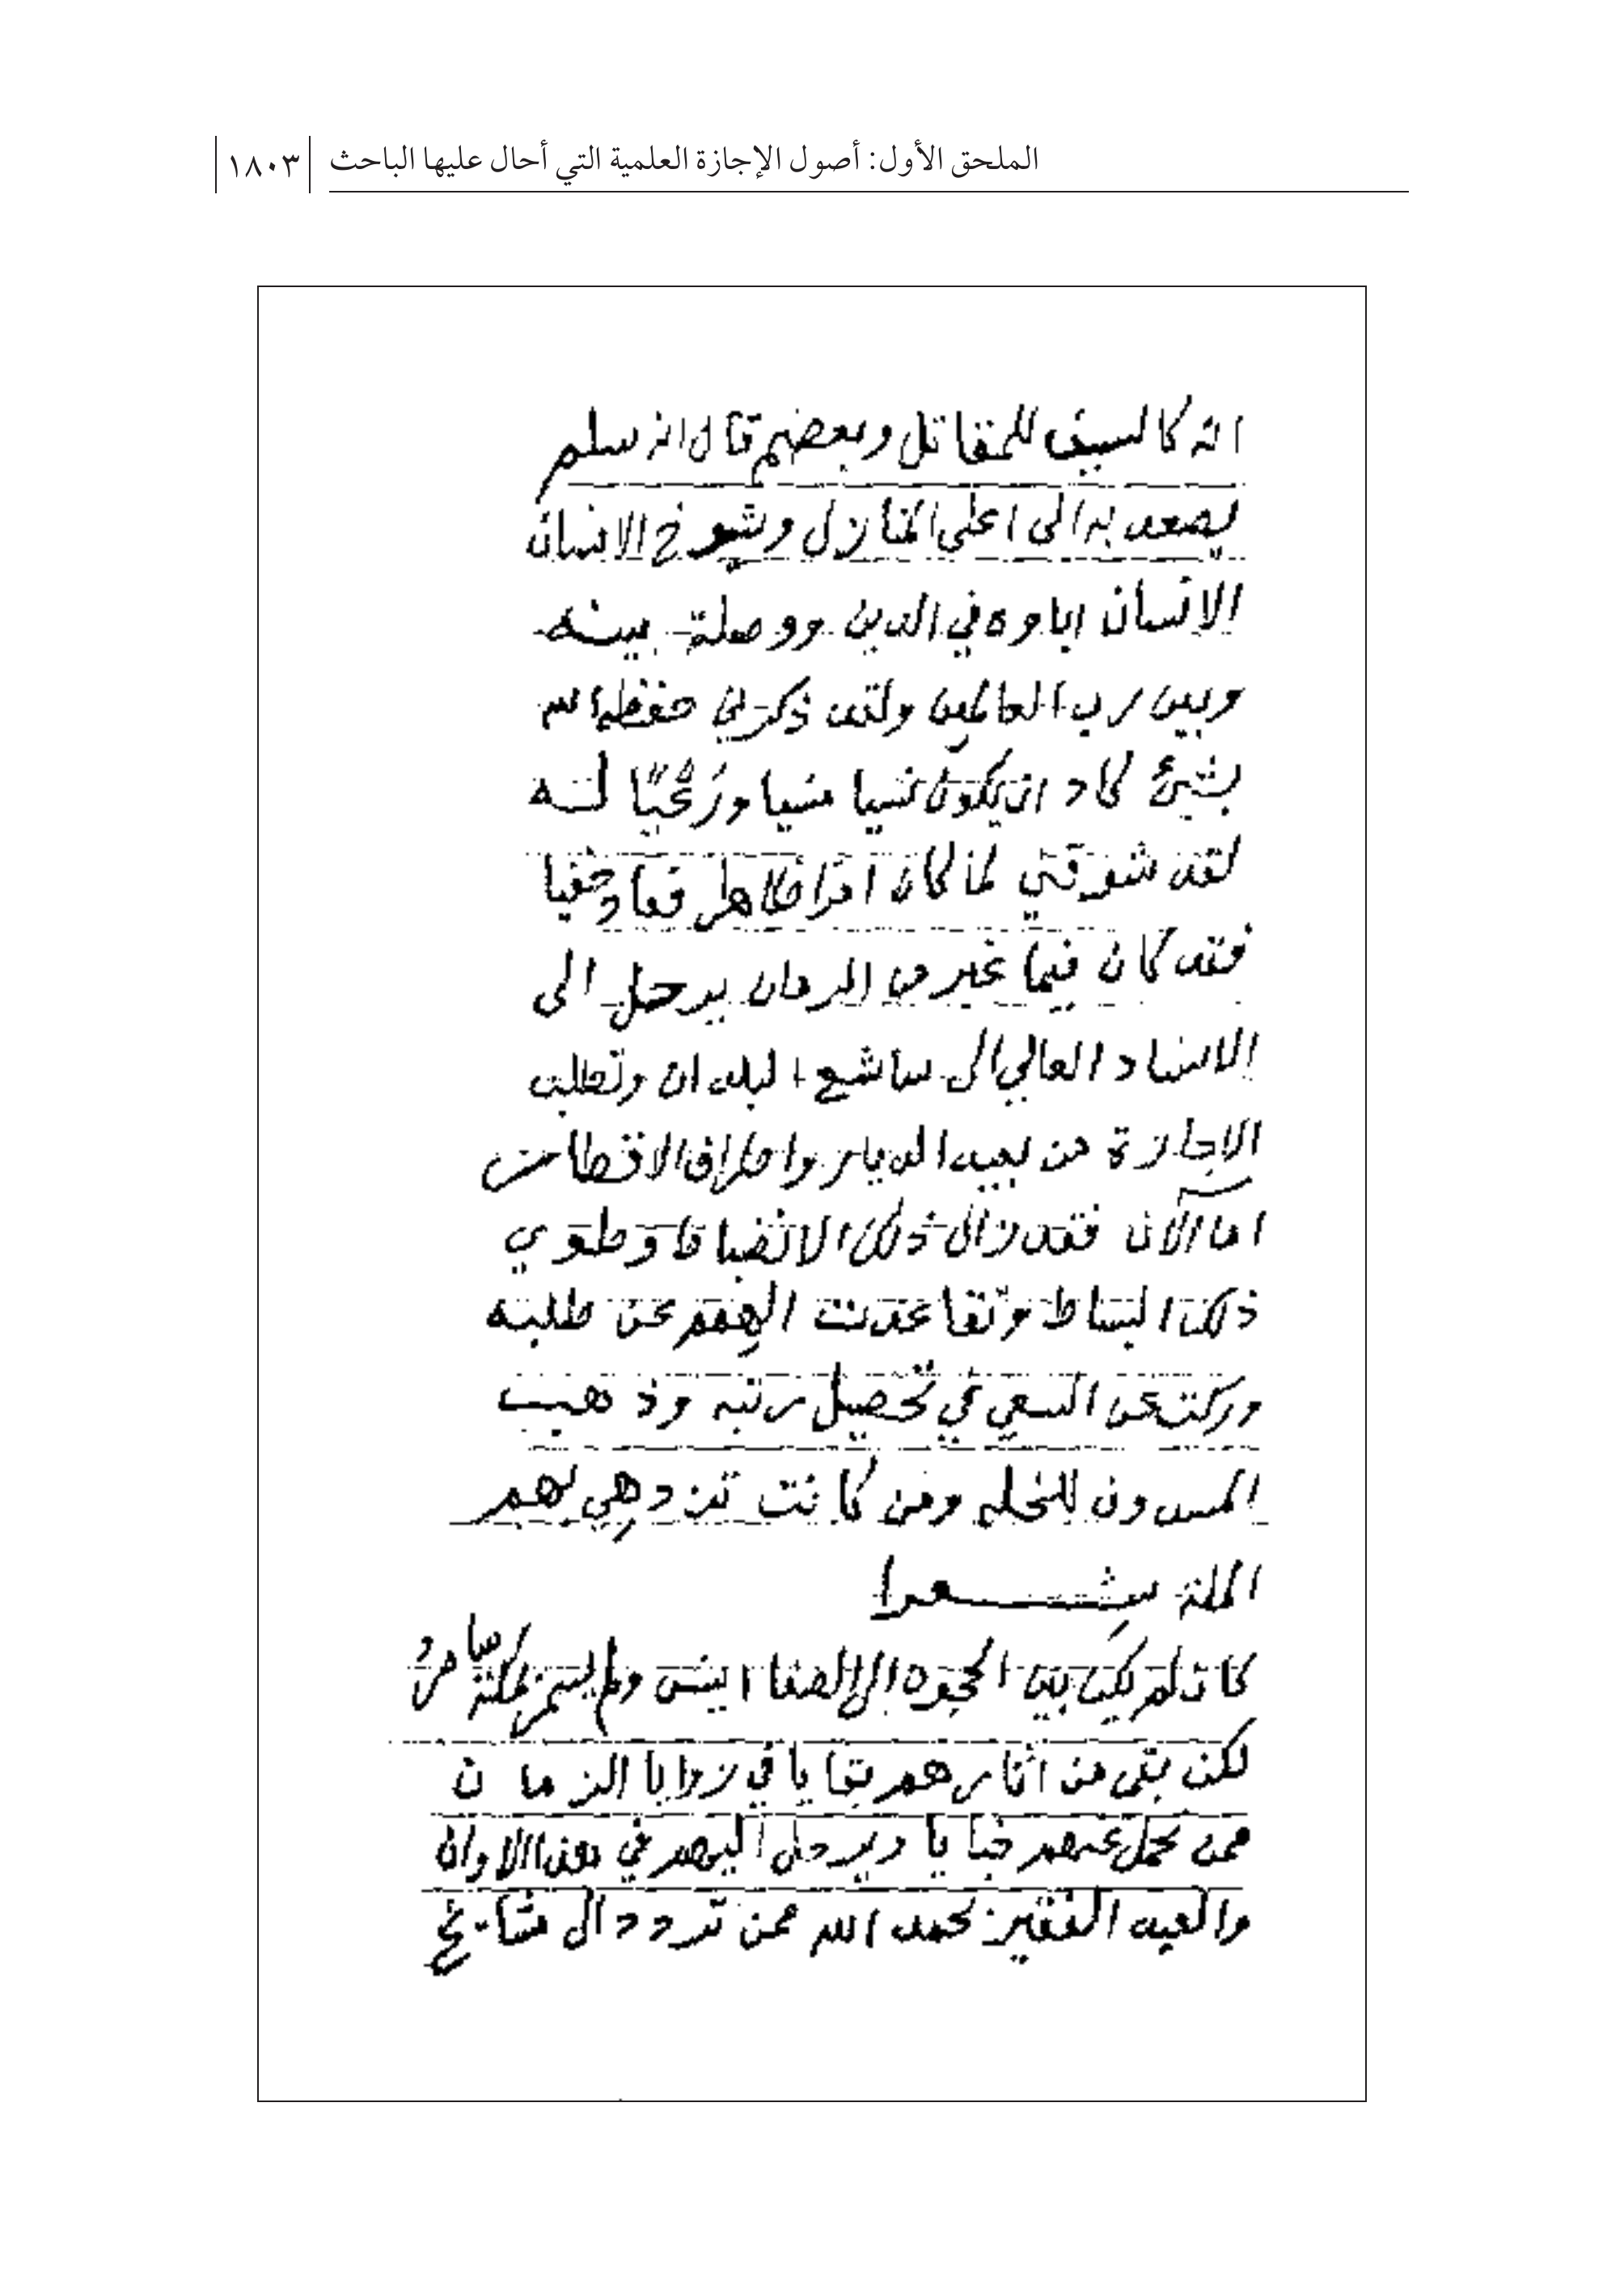 الملحق الأول: أصول الإجازة العلمية التي أحال عليها الباحث ١٨٠٣
انه كالسيف للمقاتل وبعضهم قال انه سلم
يصعد به الى اعلى المنازل وشيوخ الانسان
الانسان اباوه في الدين ووصلة بينه
وبين رب العالمين ولقد ذكرني حفظه الله
بشئ كاد ان يكون نسيا منسيا له
لقد شوقني لما كان امرا ظاهر فعاد خفيا
فقد كان فيما غبر من الزمان يرحل الى
الاسناد العالي الى شاسع البلدان وتطلب
الاجازة من بعيد الديار واطراف الاقطار
اما الآن فقد زال ذلك الانضباط وطوي
ذلك البساط وتقاعدت الهمم عن طلبه
وركت عن السعي في تحصيل رتبه وذهب
المسدون للخله ومن كانت تزدهي بهم
الملة شعرا
كان لم يكن بين الحجون الى الصفا انيس ولم يسمر بمكة سامر
لكن بقي من اثارهم بقايا في زوايا الزمان
ممن يحمل عنهم خبايا ويرحل اليهم في هذا الاوان
والعبد الفقير بحمد الله ممن تردد الى مشايخ